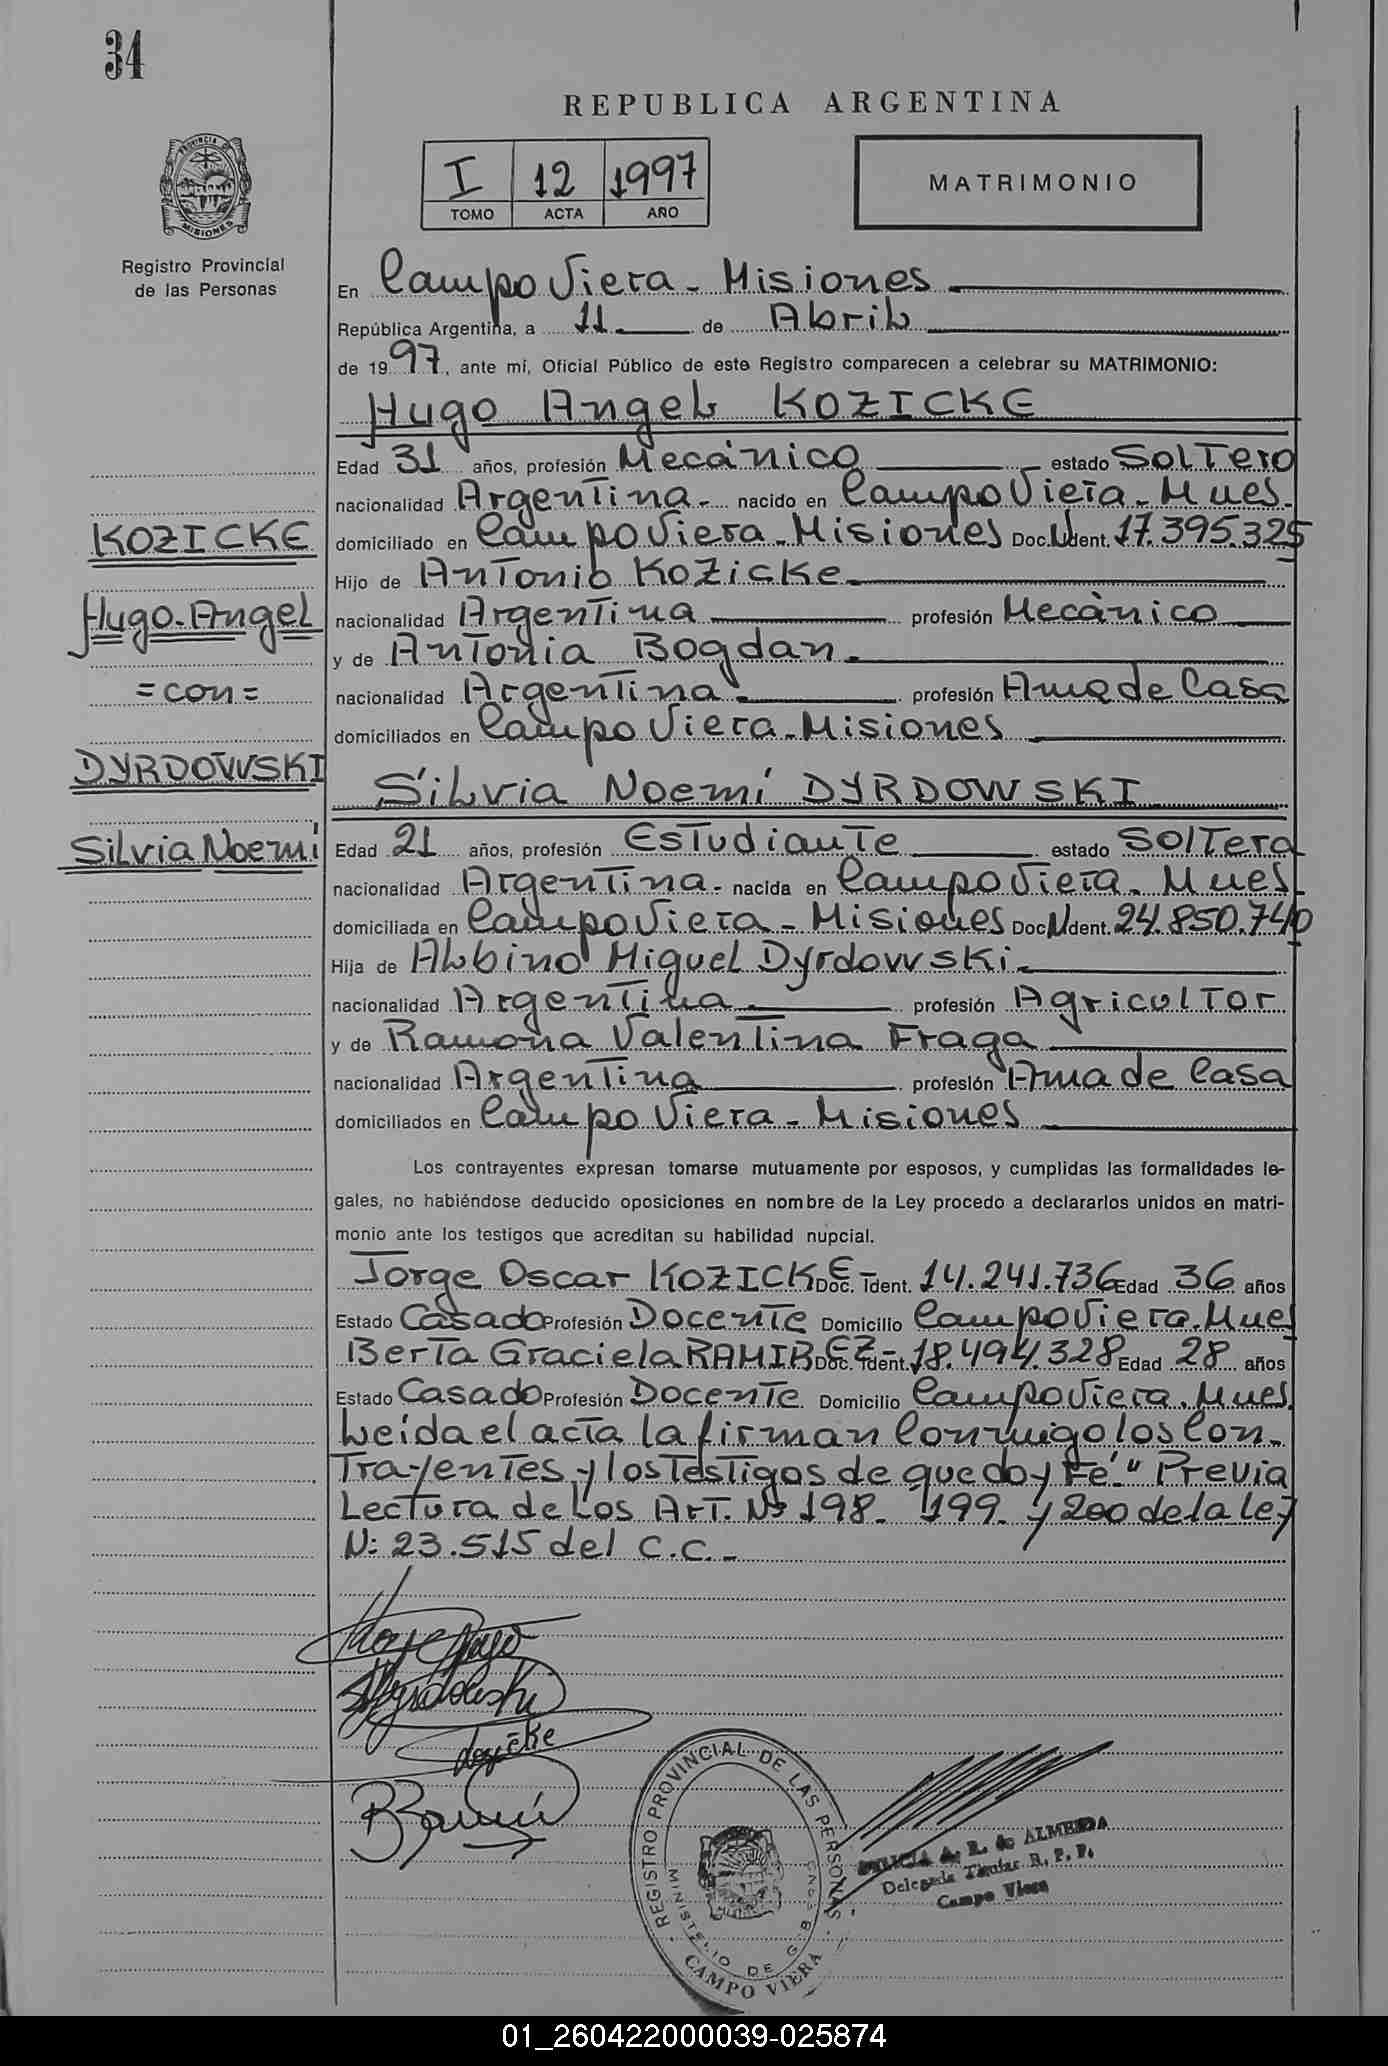 34
REPUBLICA ARGENTINA
PROVINCIA DE
MISIONES
Registro Provincial
de las Personas
I 12 1997
TOMO ACTA AÑO
MATRIMONIO
En Campo Viera - Misiones
República Argentina, a 11 de Abril
de 1997, ante mí, Oficial Público de este Registro comparecen a celebrar su MATRIMONIO:
Hugo Angel KOZICKE
Edad 31 años, profesión Mecánico estado Soltero
nacionalidad Argentina - nacido en Campo Viera - Mnes.
domiciliado en Campo Viera - Misiones Doc. N Ident. 17.395.325
Hijo de Antonio Kozicke
nacionalidad Argentina profesión Mecánico
y de Antonia Bogdan
nacionalidad Argentina profesión Ama de Casa
domiciliados en Campo Viera - Misiones
KOZICKE
Hugo - Angel
= con =
DYRDOWSKI
Silvia Noemí
Silvia Noemí DYRDOWSKI
Edad 21 años, profesión Estudiante estado Soltera
nacionalidad Argentina - nacida en Campo Viera - Mnes.
domiciliada en Campo Viera - Misiones Doc N Ident. 24.850.740
Hija de Albino Miguel Dyrdowski
nacionalidad Argentina profesión Agricultor
y de Ramona Valentina Fraga
nacionalidad Argentina profesión Ama de Casa
domiciliados en Campo Viera - Misiones
Los contrayentes expresan tomarse mutuamente por esposos, y cumplidas las formalidades le-
gales, no habiéndose deducido oposiciones en nombre de la Ley procedo a declararlos unidos en matri-
monio ante los testigos que acreditan su habilidad nupcial.
Jorge Oscar KOZICKE - Doc. Ident. 14.241.736 Edad 36 años
Estado Casado Profesión Docente Domicilio Campo Viera. Mnes
Berta Graciela RAMIREZ - Doc. Ident. 18.494.328 Edad 28 años
Estado Casado Profesión Docente Domicilio Campo Viera. Mnes.
Leída el acta la firman Conmigo los Con-
trayentes y los testigos de que doy Fé." Previa
Lectura de los Art. Nº 198 - 199 - y 200 de la Ley
N: 23.515 del C.C. -
Dyrdowski
Kozicke
REGISTRO PROVINCIAL DE LAS PERSONAS
MINISTERIO DE GOBIERNO
CAMPO VIERA
A. R. de ALMEIDA
Delegada Titular R. P. P.
Campo Viera
01_260422000039-025874